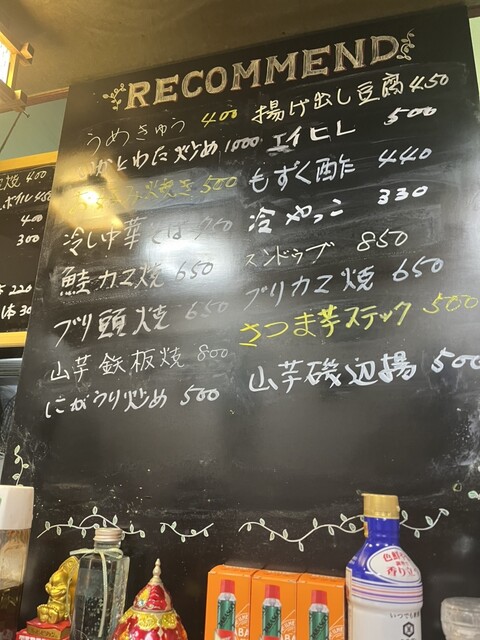 RECOMMEND
うめきゅう 400
炒め 1000
焼き 500
冷し中華
鮭カマ焼 650
ブリ頭焼 650
山芋鉄板焼 800
にがうり炒め 500
揚げ出し豆腐 450
エイヒレ 500
もずく酢 440
冷やっこ 330
スンドゥブ 850
ブリカマ焼 650
さつま芋スティック 500
山芋磯辺揚 500
焼 400
400
300
220
いつでも